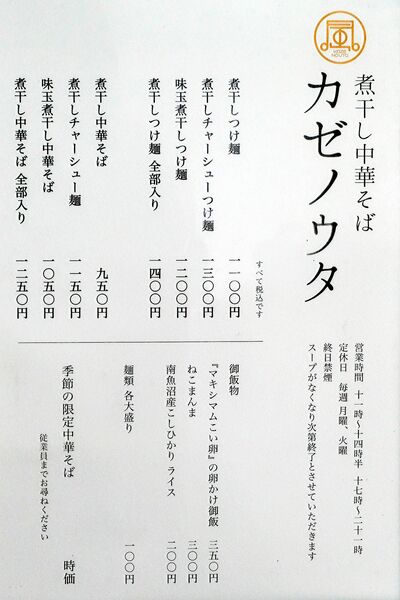 煮干し中華そば
カゼノウタ
営業時間 十一時〜十四時半 十七時〜二十一時
定休日 毎週 月曜、火曜
終日禁煙
スープがなくなり次第終了とさせていただきます
すべて税込です
煮干しつけ麺 一一〇〇円
煮干しチャーシューつけ麺 一三〇〇円
味玉煮干しつけ麺 一二〇〇円
煮干しつけ麺 全部入り 一四〇〇円
煮干し中華そば 九五〇円
煮干しチャーシュー麺 一一五〇円
味玉煮干し中華そば 一〇五〇円
煮干し中華そば 全部入り 一二五〇円
御飯物
『マキシマムこい卵』の卵かけ御飯 三五〇円
ねこまんま 三〇〇円
南魚沼産こしひかり ライス 二〇〇円
麺類 各大盛り 一〇〇円
季節の限定中華そば 時価
従業員までお尋ねください